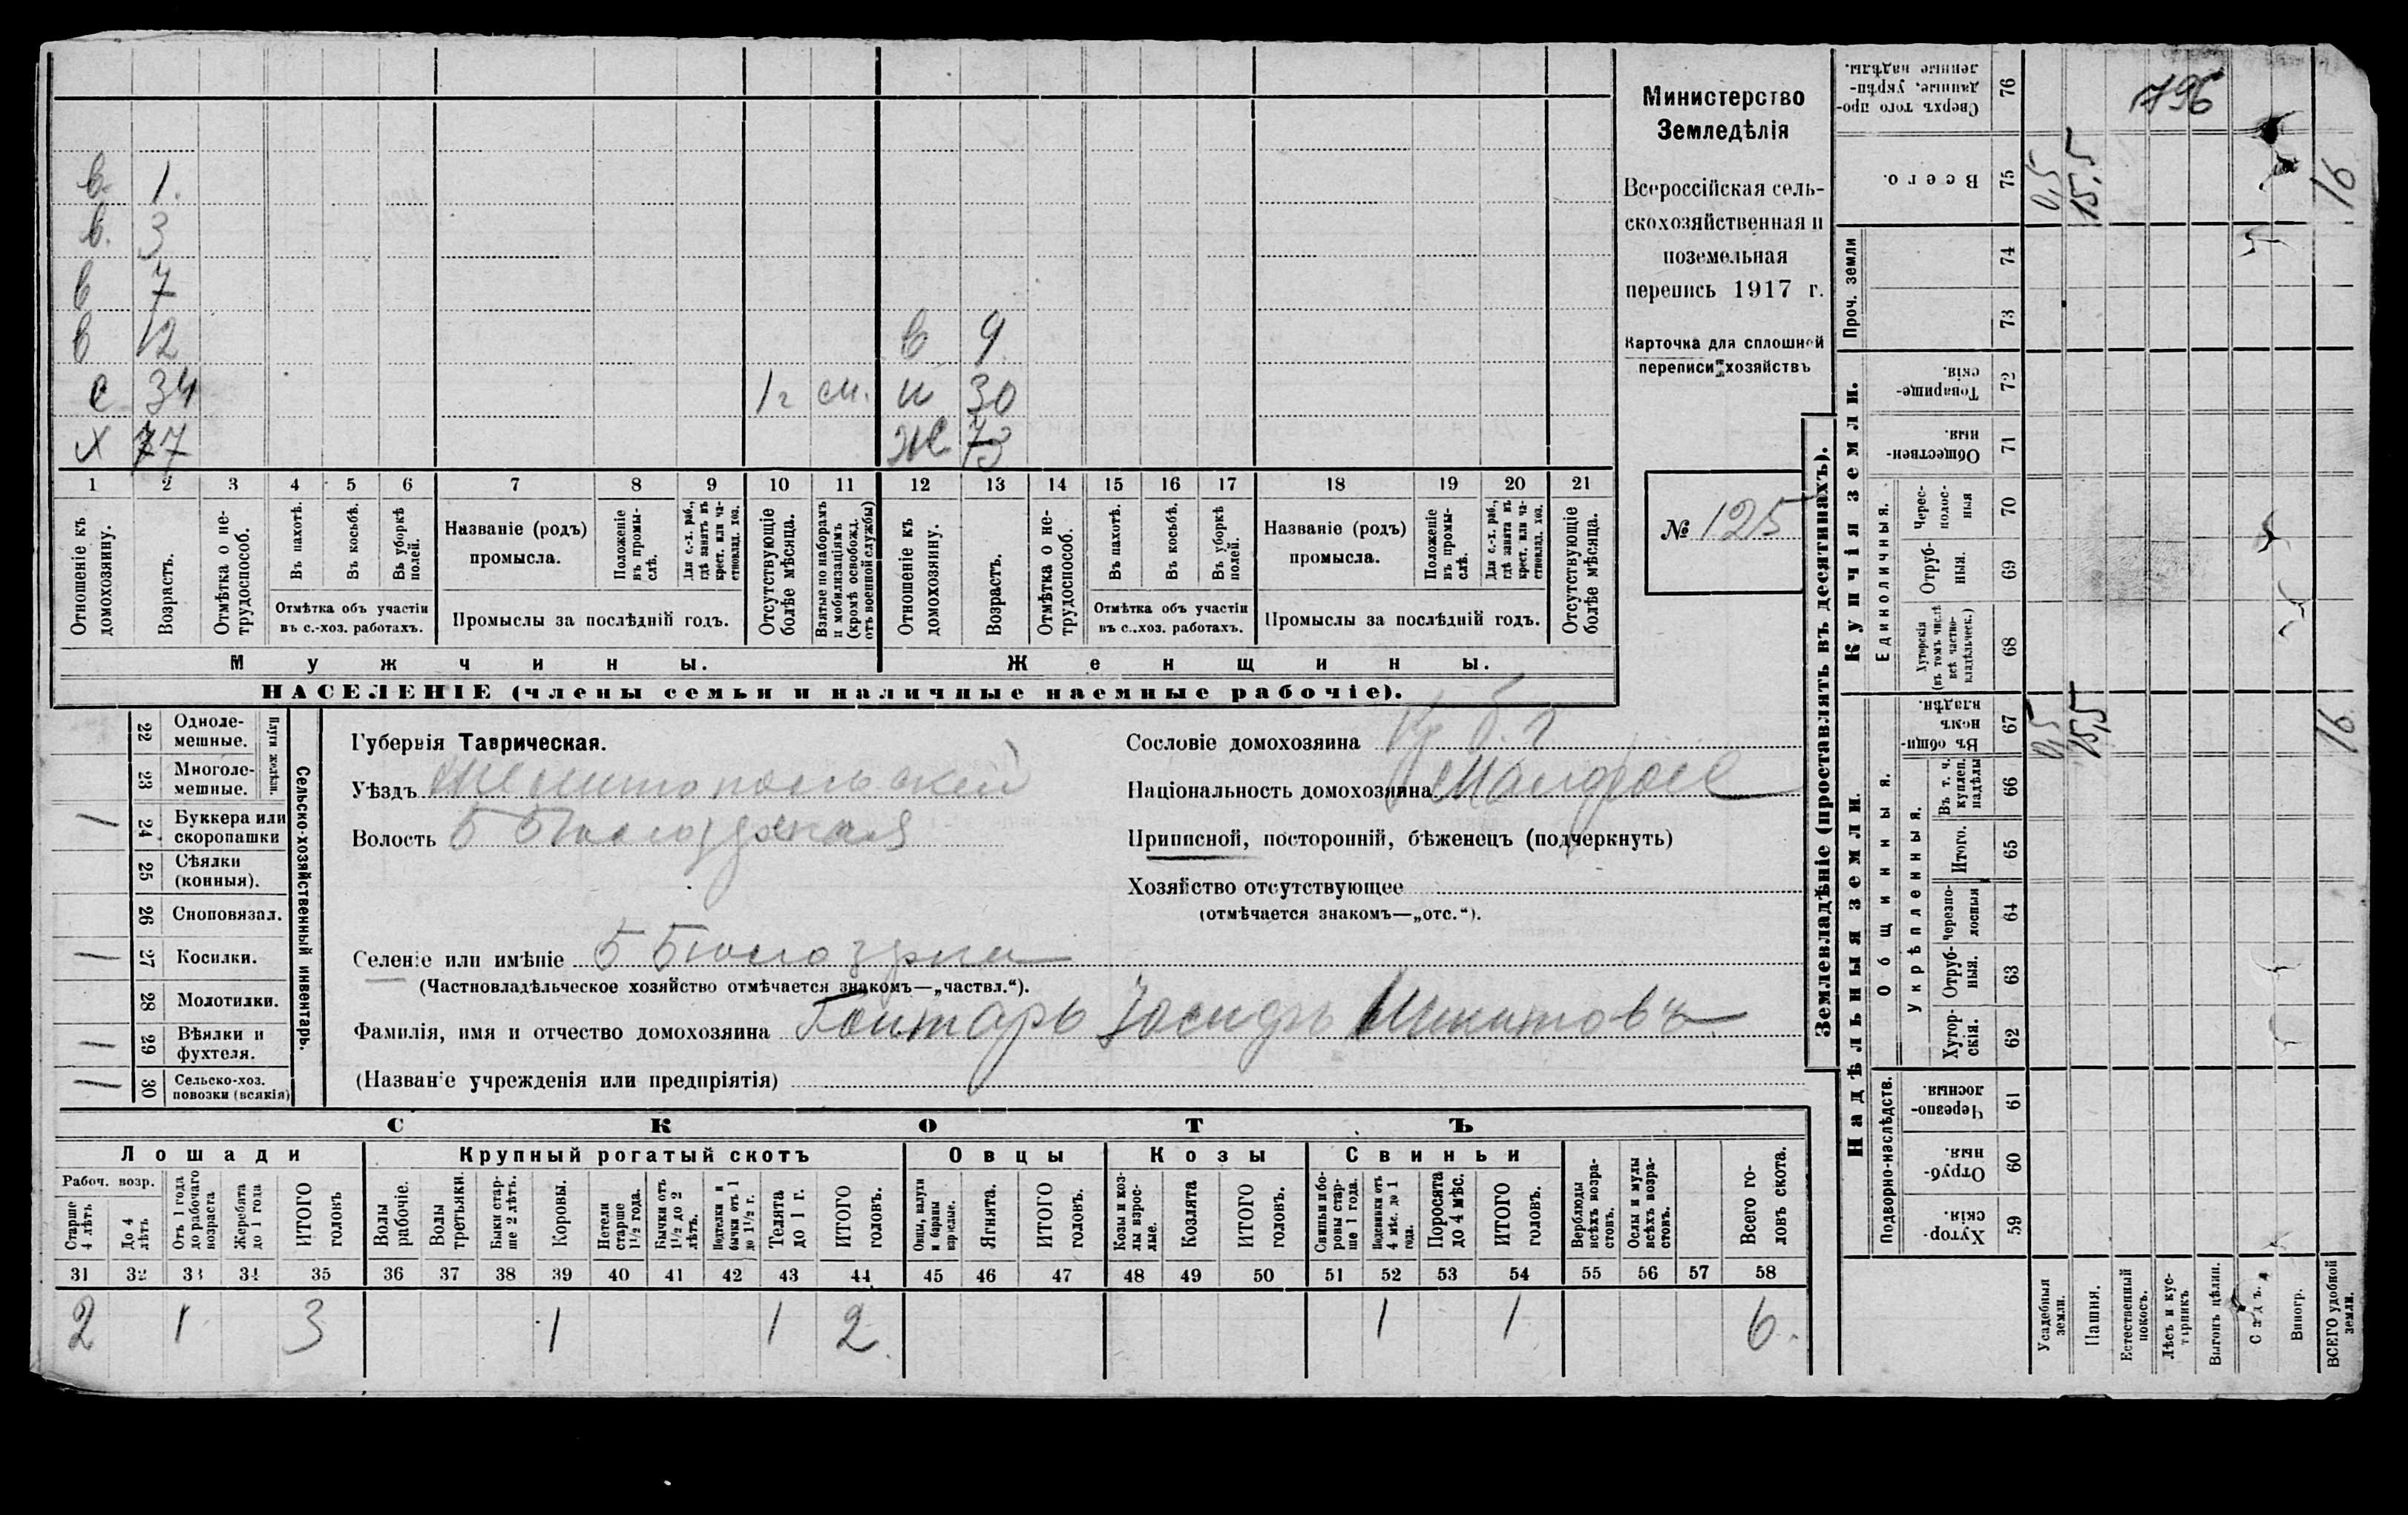 в. 1.
в. 3
в 7
в 12 в 9
с 34 1 г см. н 30
х 77 ж 73
1 2 3 4 5 6 7 8 9 10 11 12 13 14 15 16 17 18 19 20 21
Отношеніе къ домохозяину.
Возрастъ.
Отмѣтка о не-трудоспособ.
Въ пахотѣ.
Въ косьбѣ.
Въ уборкѣ полей.
Отмѣтка объ участіи
въ с.-хоз. работахъ.
Названіе (родъ)
промысла.
Положеніе въ промы-слѣ.
Для с.-х. раб., гдѣ занятъ въ крест. или ча-стновлад. хоз.
Промыслы за послѣдній годъ.
Отсутствующіе болѣе мѣсяца.
Взятые по наборамъ и мобилизаціямъ (кромѣ освобожд. отъ военной службы)
Отношеніе къ домохозяину.
Возрастъ.
Отмѣтка о не-трудоспособ.
Въ пахотѣ.
Въ косьбѣ.
Въ уборкѣ полей.
Отмѣтка объ участіи
въ с..хоз. работахъ.
Названіе (родъ)
промысла.
Положеніе въ промы-слѣ.
Для с.-х. раб., гдѣ занята въ крест. или ча-стновлад. хоз.
Промыслы за послѣдній годъ.
Отсутствующіе болѣе мѣсяца.
Мужчины. Женщины.
НАСЕЛЕНІЕ (члены семьи и наличные наемные рабочіе).
Министерство
Земледѣлія
Всероссійская сель-
скохозяйственная и
поземельная
перепись 1917 г.
Карточка для сплошной
переписи хозяйствъ
№ 125
22 Одноле-
мешные.
23 Многоле-
мешные.
Плуги желѣзн.
/ 24 Буккера или
скоропашки
25 Сѣялки
(конныя).
26 Сноповязал.
/ 27 Косилки.
28 Молотилки.
/ 29 Вѣялки и
фухтеля.
/ 30 Сельско-хоз.
повозки (всякія)
Сельско-хозяйственный инвентарь.
Губернія Таврическая.
Уѣздъ Мелитопольскій
Волость Б Бѣлозерская
Селеніе или имѣніе Б Бѣлозерка
(Частновладѣльческое хозяйство отмѣчается знакомъ—„частвл.“).
Фамилія, имя и отчество домохозяина Гонтарь Іосифъ Никитовъ
(Названіе учрежденія или предпріятія)
Сословіе домохозяина Кр б. г
Національность домохозяина Малорос
Приписной, посторонній, бѣженецъ (подчеркнуть)
Хозяйство отсутствующее
(отмѣчается знакомъ—„отс.“).
СКОТЪ
Лошади Крупный рогатый скотъ Овцы Козы Свиньи
Рабоч. возр.
Старше 4 лѣтъ
До 4 лѣтъ
Отъ 1 года до рабочаго возраста
Жеребята до 1 года
ИТОГО головъ
Волы рабочіе.
Волы третьяки.
Быки стар-ше 2 лѣтъ.
Коровы.
Нетели старше 1½ года.
Бычки отъ 1½ до 2 лѣтъ.
Подтелки и бычки отъ 1 до 1½ г.
Телята до 1 г.
ИТОГО головъ.
Овцы, валухи и бараны взрослые.
Ягнята.
ИТОГО головъ.
Козы и коз-лы взрос-лые.
Козлята
ИТОГО головъ.
Свиньи и бо-ровы стар-ше 1 года.
Подсвинки отъ 4 мѣс. до 1 года.
Поросята до 4 мѣс.
ИТОГО головъ.
Верблюды всѣхъ возра-стовъ.
Ослы и мулы всѣхъ возра-стовъ.
Всего го-ловъ скота.
31 32 33 34 35 36 37 38 39 40 41 42 43 44 45 46 47 48 49 50 51 52 53 54 55 56 57 58
2 1 3 1 1 2 1 1 6.
Землевладѣніе (проставлять въ десятинахъ).
Купчія земли.
Надѣльныя земли.
Сверхъ того про-данные, укрѣп-ленные надѣлы. 76
796
Всего. 75 0,5 15,5 16
Проч. земли 74
73
Товарище-скія. 72
Обществен-ныя. 71
Единоличныя.
Черес-полос-ныя 70
Отруб-ныя. 69
Хуторскія (въ томъ числѣ всѣ частно-владѣльческ.) 68
Общинныя.
Въ общи-номъ владѣн. 67 0,5 15,5 16
Укрѣпленныя.
Въ т. ч. куплен. надѣлы 66
Итого. 65
Черезпо-лосныя 64
Отруб-ныя. 63
Хутор-скія. 62
Подворно-наслѣдств.
Черезпо-лосныя 61
Отруб-ныя. 60
Хутор-скія. 59
Усадебныя земли.
Пашня.
Естественный покосъ.
Лѣсъ и кус-тарникъ
Выгонъ цѣлин.
Садъ.
Виногр.
ВСЕГО удобной земли.